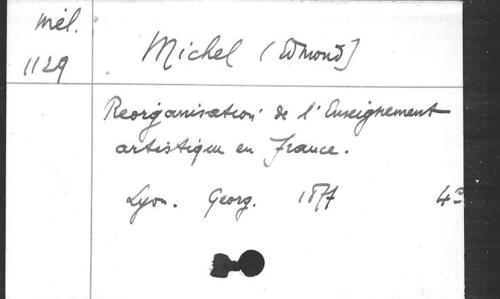 mél.
1129
Michel (Edmond)
Reorganisation de l'Enseignement
artistique en France.
Lyon. Georg. 1877 4º